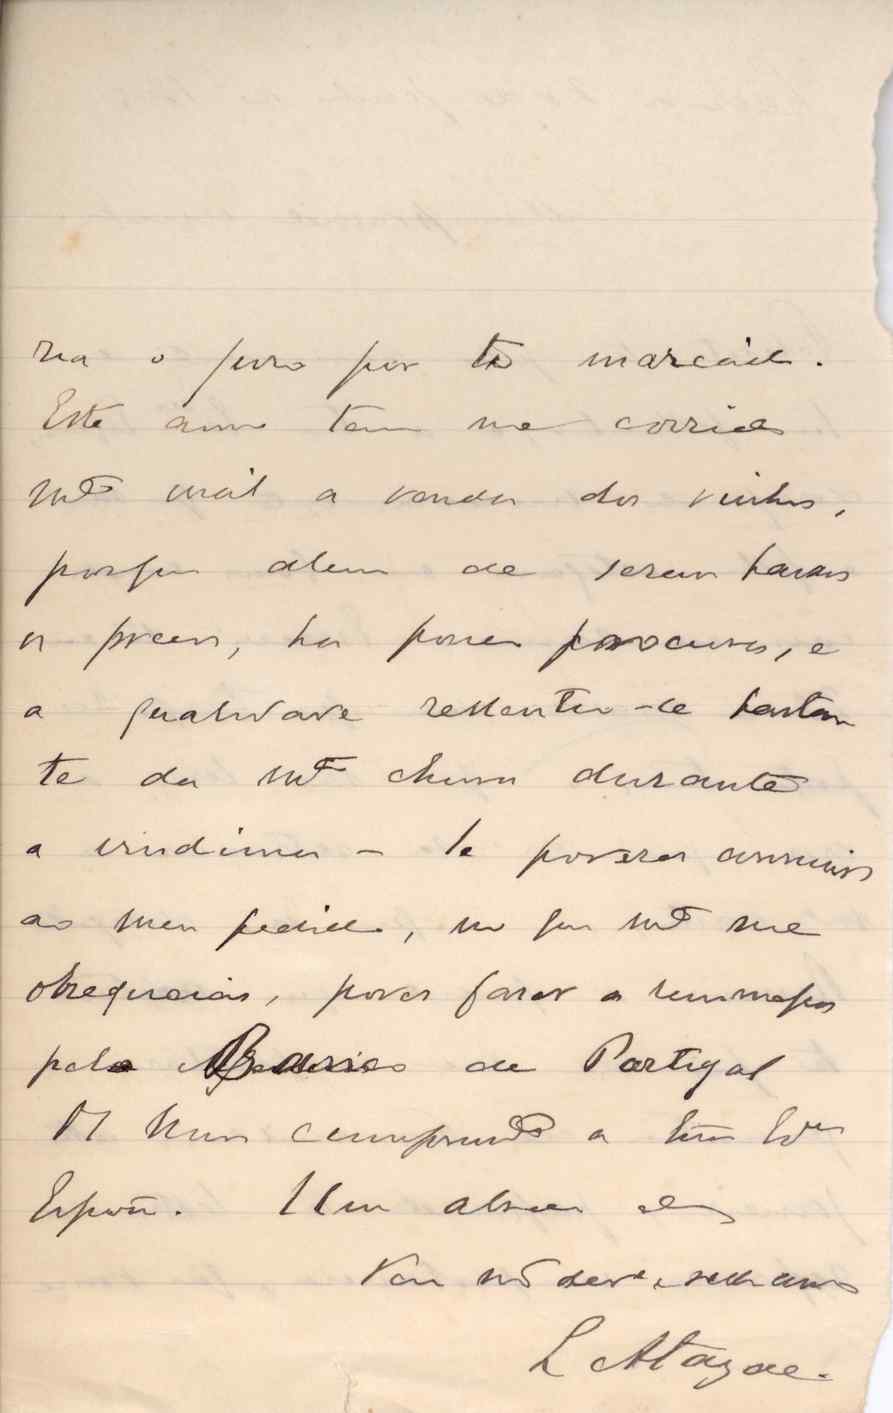 ria o juro por ti marcado.
Este anno tem me corrido
mto mal a venda dos vinhos,
porque alem de serem baixos
os preços, ha pouca procura, e
a qualidade ressentiu-se bastan
te da mta chuva durante
a vindima - Se poderes annuir
ao meu pedido, no que mto me
obsequeias, podes fazer a remmessa
pelo Banco de Portugal
Os meus cumprimtos a tua
Espoza. Um abraço do
Teu mto
L Atayde.